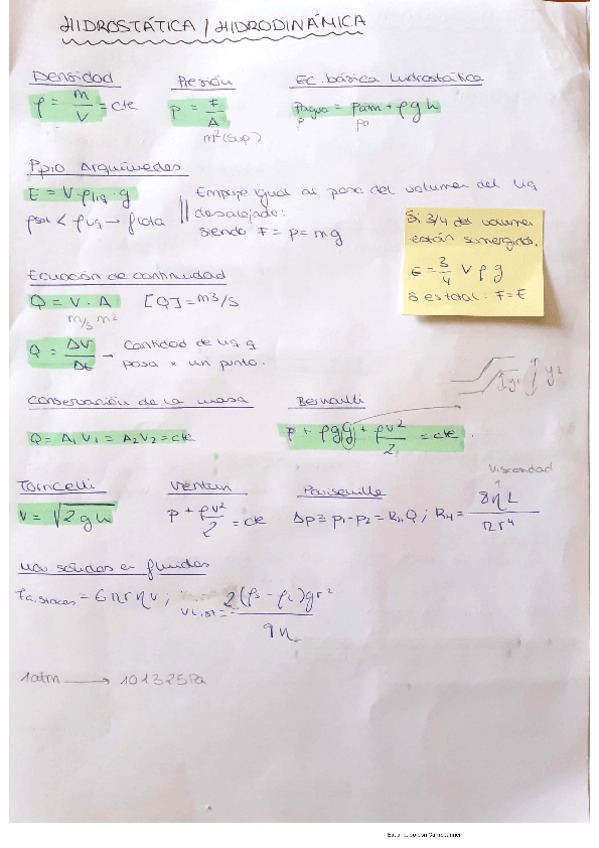 HIDROSTÁTICA / HIDRODINÁMICA
Densidad
ρ = m/V = cte
Presión
p = F/A
m² (sup)
Ec. básica hidrostática
Pagua = Patm + ρgh
p p0
Ppio Arquímedes
E = V · ρliq · g
ρsol < ρliq → flota
Empuje igual al peso del volumen del liq
desalojado:
siendo F = p = mg
Si 3/4 del volumen
están sumergidos.
E = 3/4 V ρ g
Si es total: F = E
Ecuación de continuidad
Q = V · A [Q] = m3/s
m/s m²
Q = ΔV/Δt → Cantidad de liq q
pasa x un punto.
Conservación de la masa
Q = A1 V1 = A2 V2 = cte
Bernoulli
p + ρgy + ρv²/2 = cte.
y1 y2
Torricelli
V = √2gh
Venturi
p + ρv²/2 = cte
Poiseuille
Δp = p1 - p2 = RH Q ; RH = 8ηL/πr⁴
Viscosidad
Mov sólidos en fluidos
Fa.stokes = 6πrηv ; vlím = 2(ρs - ρL)gr²/9η
1atm → 101325Pa